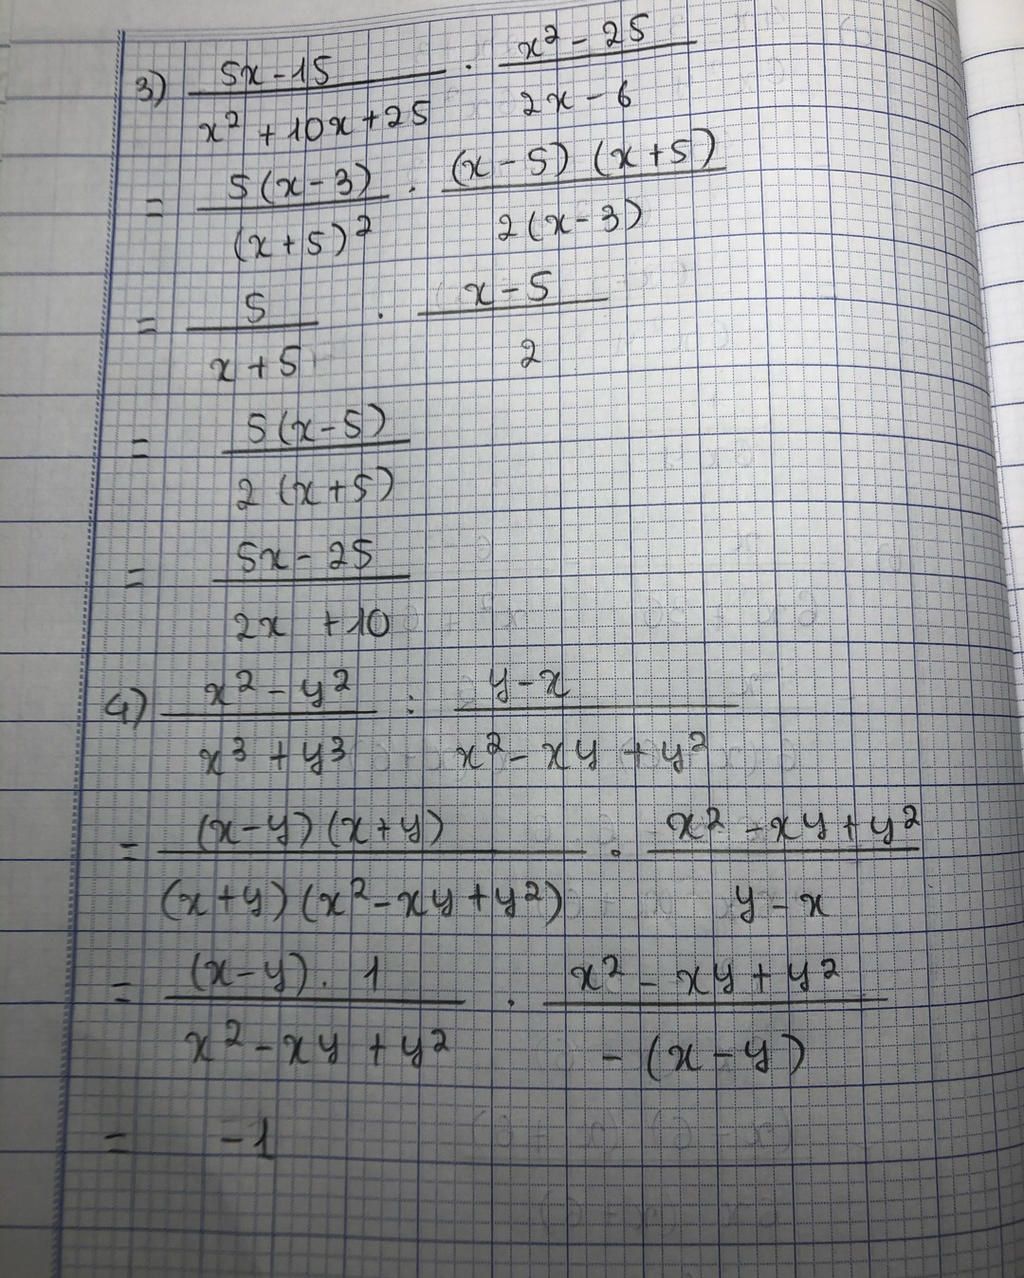 3) (5x - 15)/(x² + 10x + 25) . (x² - 25)/(2x - 6)
= 5(x - 3)/(x + 5)² . (x - 5)(x + 5)/2(x - 3)
= 5/(x + 5) . (x - 5)/2
= 5(x - 5)/2(x + 5)
= (5x - 25)/(2x + 10)
4) (x² - y²)/(x³ + y³) : (y - x)/(x² - xy + y²)
= (x - y)(x + y)/(x + y)(x² - xy + y²) . (x² - xy + y²)/(y - x)
= (x - y) . 1/(x² - xy + y²) . (x² - xy + y²)/-(x - y)
= -1